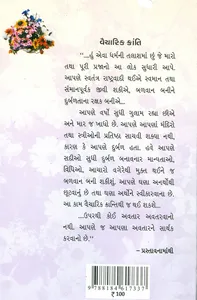 વૈચારિક ક્રાંતિ
"...હું એવા ધર્મની તલાશમાં છું જે મારો
તથા પૂરી પ્રજાનો આ લોક સુધારી આપે.
આપણે સ્વતંત્ર રાષ્ટ્રવાદી થઈએ સ્વમાન તથા
સંમાનપૂર્વક જીવી શકીએ, બળવાન બનીને
દુર્બળતાના રક્ષક બનીએ...
આપણે વર્ષો સુધી ગુલામ રહ્યા છીએ
અને માર જ ખાધો છે. આપણે આપણાં મંદિરો
તથા સ્ત્રીઓની પ્રતિષ્ઠા સાચવી શક્યા નથી.
કારણ કે આપણે દુર્બળ હતા. હવે આપણે
સદીઓ સુધી દુર્બળ બનાવનાર માન્યતાઓ,
વિધિઓ, આચારો વગેરેથી મુક્ત થઈને જ
બળવાન બની શકીશું. આપણે ઘણા અનર્થોથી
છૂટવાનું છે તથા ઘણા અર્થોને સ્વીકારવાના છે.
આ કામ વૈચારિક ક્રાન્તિથી જ થઈ શકશે...
...ઉપરથી કોઈ અવતાર અવતરવાનો
નથી. આપણે જ આપણા અવતારને સાર્થક
કરવાનો છે."
– પ્રસ્તાવનામાંથી
9 788184 617337
₹ 100